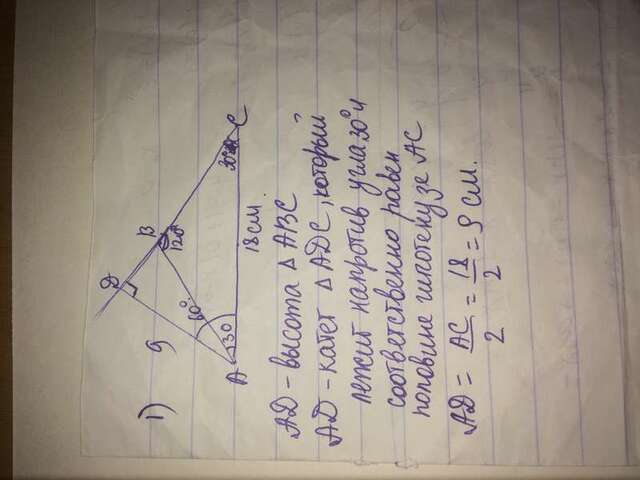 D
1) 9 B
60° 120°
A 30 30° C
18 см.
AD - высота △ ABC
AD - катет △ ADC, который
лежит напротив угла 30° и
соответственно равен
половине гипотенузе AC
AD = AC/2 = 18/2 = 9 см.